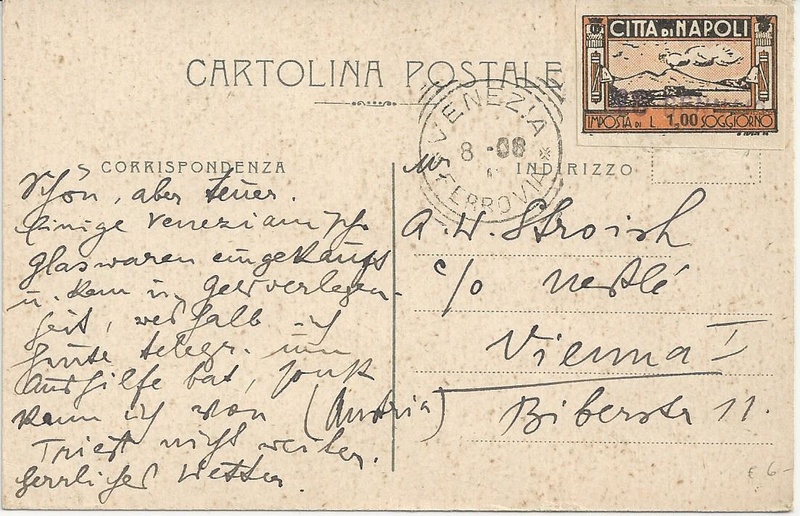 CITTA DI NAPOLI
IMPOSTA DI L. 1,00 SOGGIORNO
CARTOLINA POSTALE
VENEZIA
8 -08
FERROVIA
CORRISPONDENZA
INDIRIZZO
Schön, aber teuer.
Einige Venezianische
Glaswaren eingekauft
u. kam in Geldverlegen-
heit, weshalb ich
heute telegr. um
Aushilfe bat, sonst
kann ich von
Triest nicht weiter.
Herrliches Wetter.
Mr
A. W. Stroish
c/o Nestlé
Vienna I
(Austria) Biberstr 11.
€ 6-